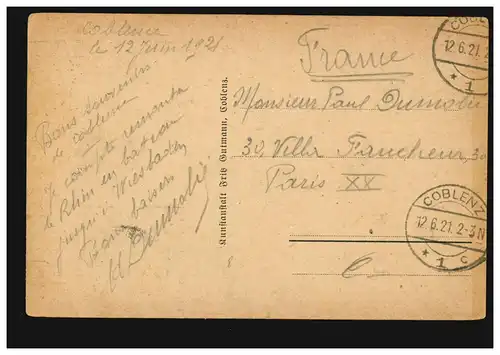 Coblence
le 12 Juin 1921
Bons souvenirs
de Coblence
je compte remonter
le Rhin en bateau
jusqu'à Wiesbaden
Bons baisers
Dumolie
Kunstanstalt Fritz Gutmann, Coblenz.
France
Monsieur Paul Dumolie
30, Villa Faucheur, 30
Paris XX
COBLENZ
12.6.21. 2
* 1
COBLENZ
12.6.21. 2-3 N
* 1 c